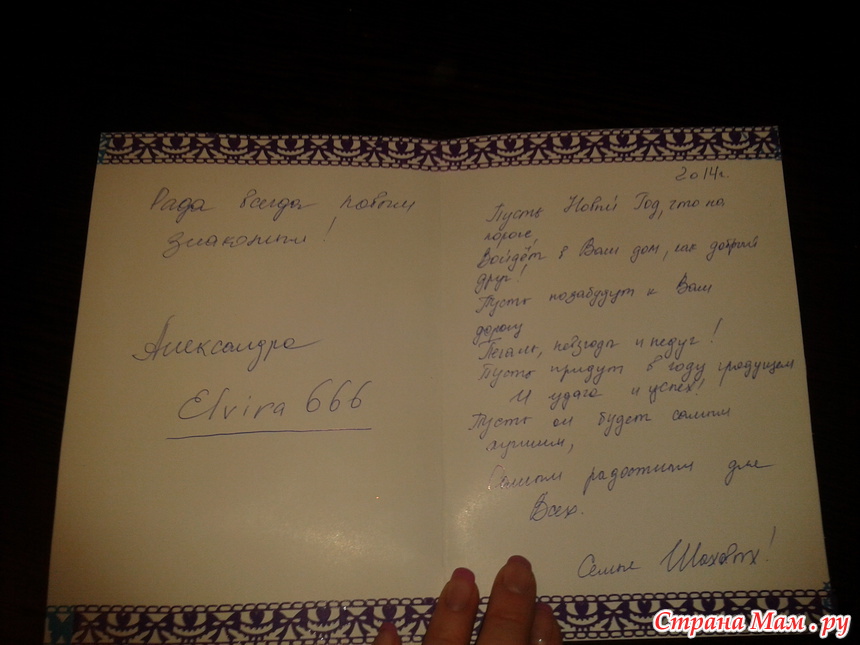 Рада всегда новым
знакомым!
Александра
Elvira 666
2014г.
Пусть Новый Год, что на
пороге,
Войдёт в Ваш дом, как добрый
друг!
Пусть позабудут к Вам
дорогу
Печаль, невзгоды и недуг!
Пусть придут в году грядущем
И удача и успех!
Пусть он будет самым
лучшим,
Самым радостным для
Всех.
Семье Шаховых!
Страна Мам.ру